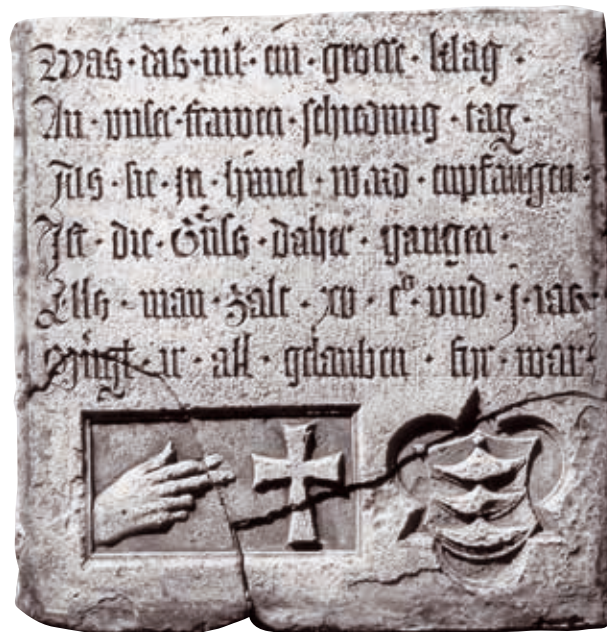 Was · das · nit · ein · grosse · klag ·
An · vnser · frawen · schiedung · tag ·
Als · sie · jn · himel · ward · enpfangen ·
Ist · die · Güss · daher · gangen ·
Alls · man · zalt · xv · cᵒ · vnd · j · iar
Mügt · ir · all · gelauben · für · war